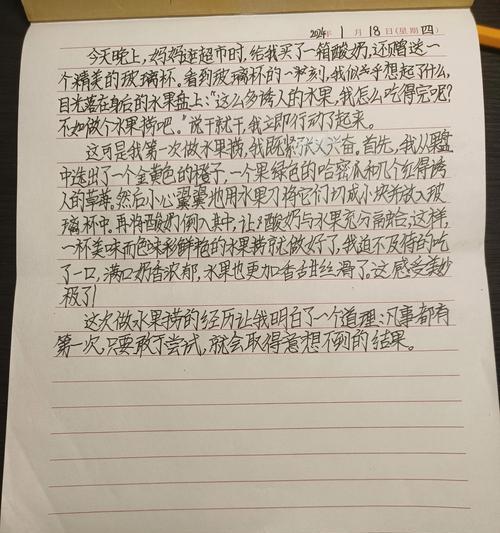 2024年 1月 18日(星期四)
今天晚上，妈妈逛超市时，给我买了一箱酸奶，还赠送一
个精美的玻璃杯。看到玻璃杯的一刹那，我似乎想起了什么，
目光落在身后的水果盘上:“这么多诱人的水果，我怎么吃得完呢?
不如做个水果捞吧。”说干就干，我立即行动了起来。
这可是我第一次做水果捞，我既紧张又兴奋。首先，我从果盘
中选出了一个金黄色的橙子，一个果绿色的哈密瓜和几个红得诱
人的草莓。然后小心翼翼地用水果刀将它们切成小块并放入玻
璃杯中。再将酸奶倒入其中，让酸奶与水果充分融合。这样，
一杯美味而色味彩鲜艳的水果捞就做好了，我迫不及待的吃
了一口，满口奶香浓郁，水果也更加香甜丝滑了。这感受美妙
极了!
这次做水果捞的经历让我明白了一个道理:凡事都有
第一次，只要敢于尝试，就会取得意想不到的结果。